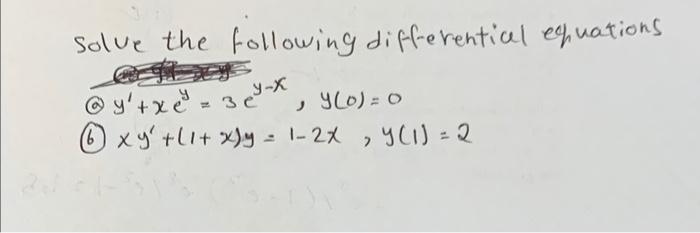 Solve the following differential equations
ⓐ y' + x e^y = 3 e^{y-x} , y(0) = 0
ⓑ x y' + (1 + x)y = 1 - 2x , y(1) = 2